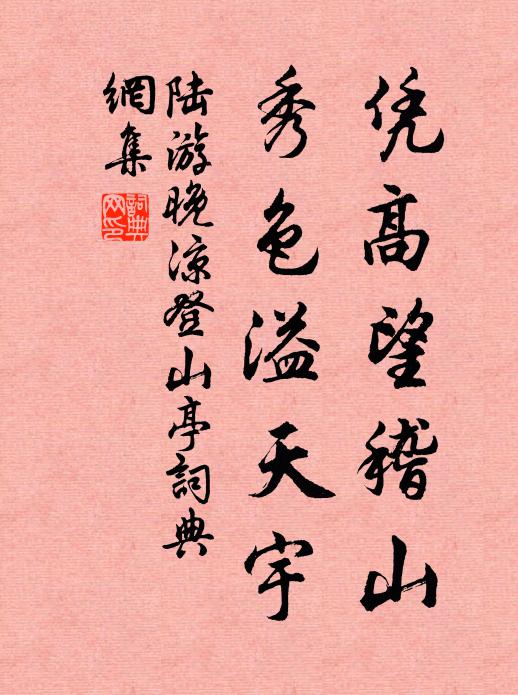 凭高望稽山
秀色溢天宇
陆游晚凉登山亭詞典
網集
詞典
网印